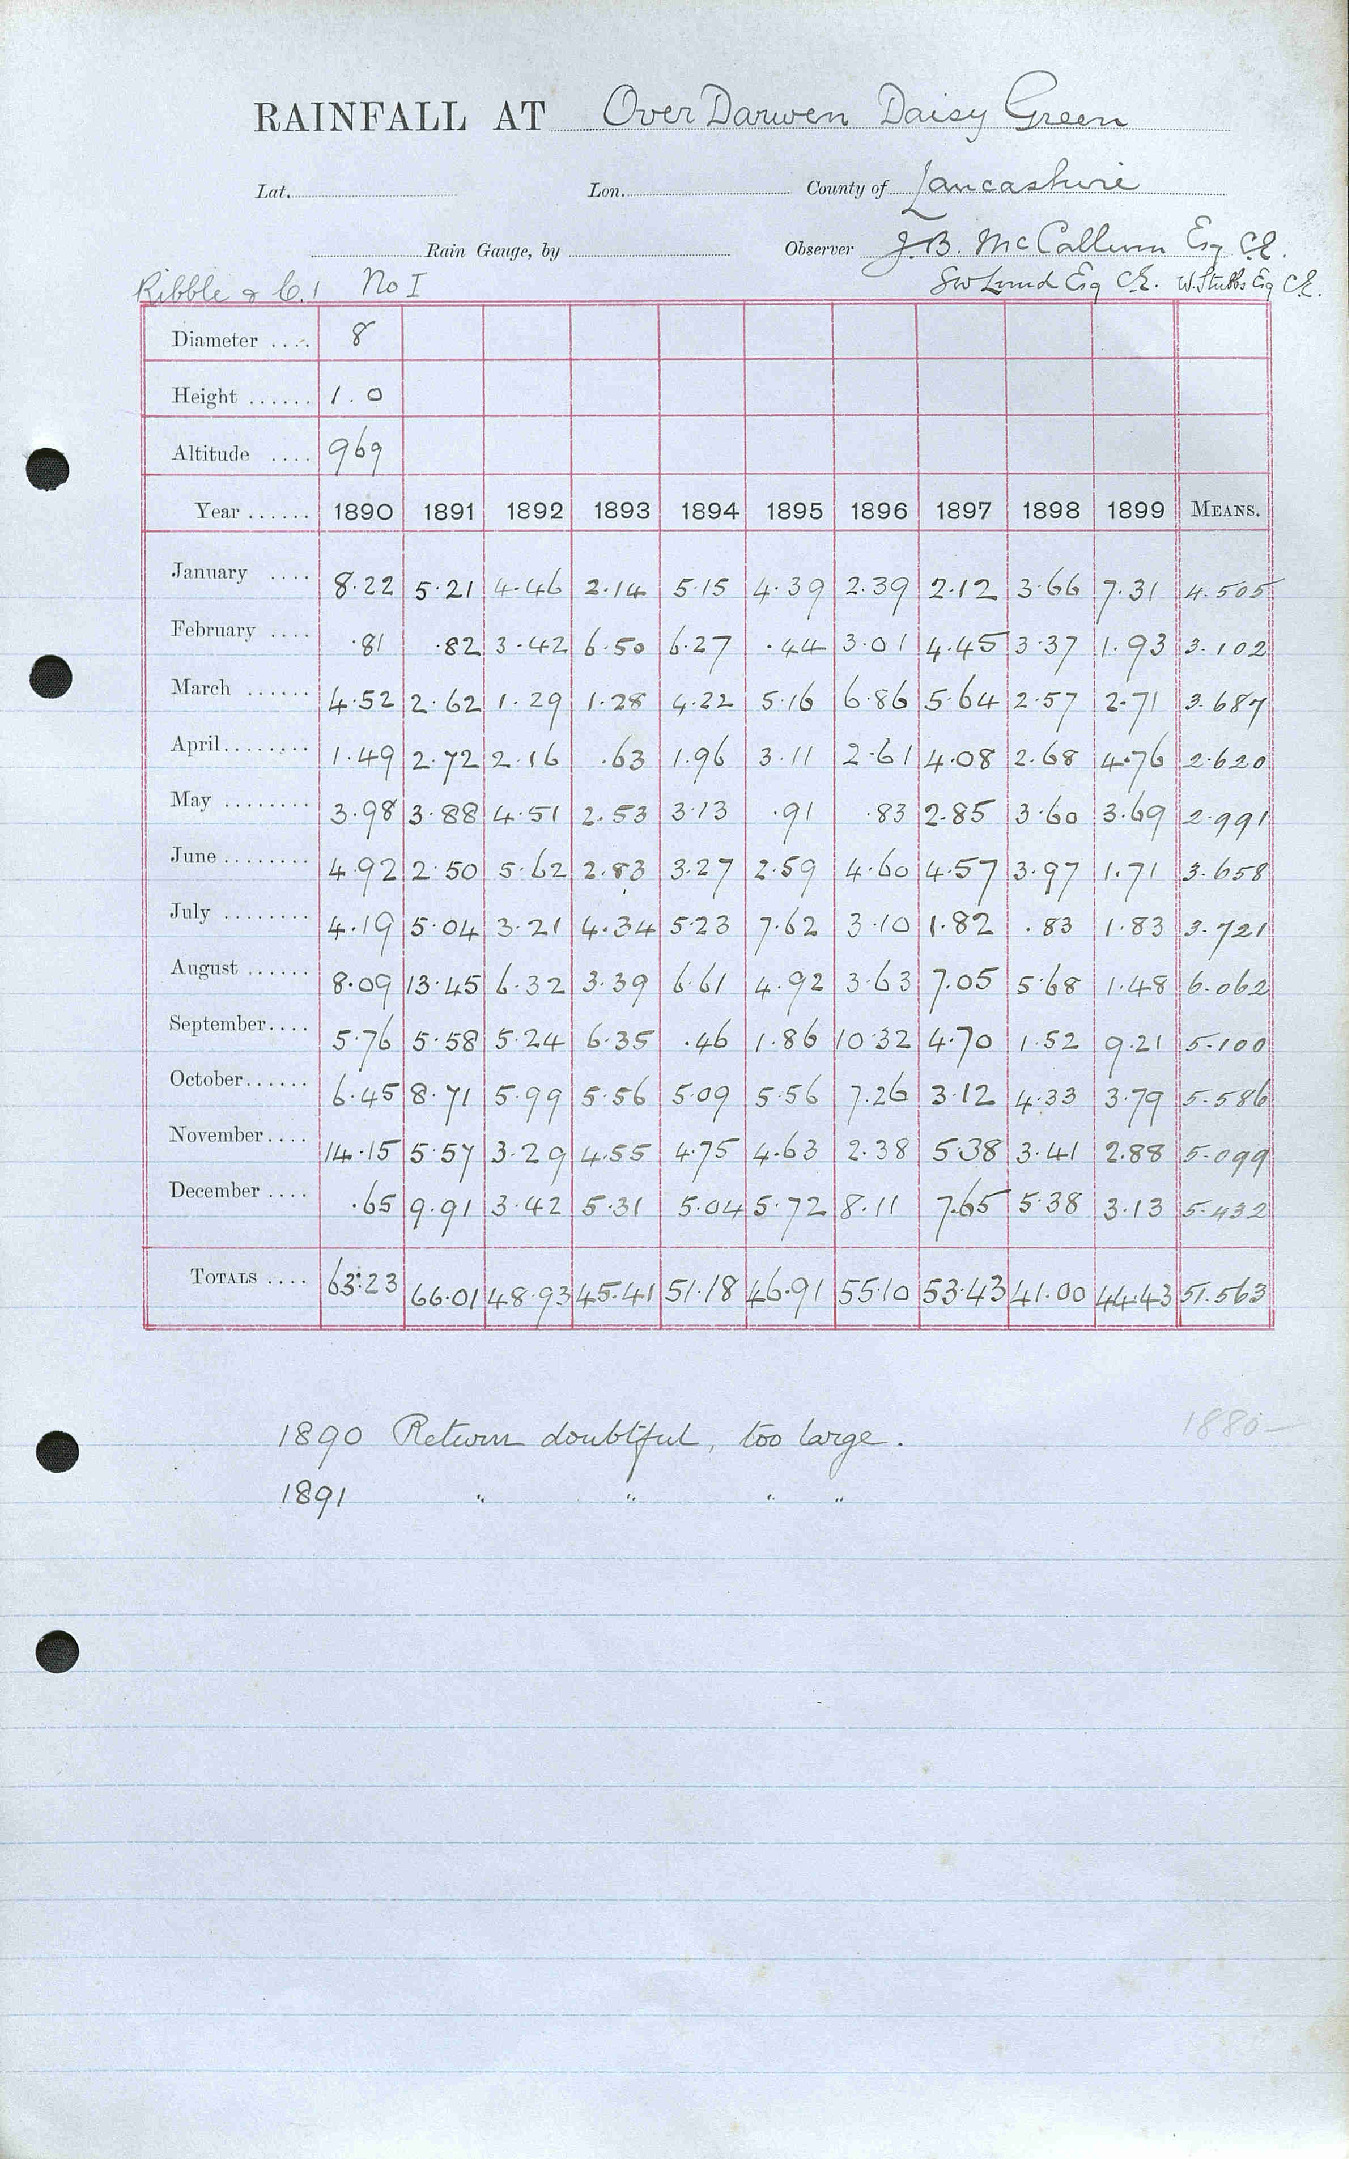 RAINFALL AT Over Darwen Daisy Green
Lat. Lon. County of Lancashire
Rain Gauge, by Observer J.B. McCallum Esq C.E.
Ribble & C.1 No I Lund Esq C.E. W. Stubbs Esq C.E.
Diameter .... 8
Height ...... 1.0
Altitude .... 969
Year ...... 1890 1891 1892 1893 1894 1895 1896 1897 1898 1899 MEANS.
January .... 8.22 5.21 4.46 2.14 5.15 4.39 2.39 2.12 3.66 7.31 4.505
February .... .81 .82 3.42 6.50 6.27 .44 3.01 4.45 3.37 1.93 3.102
March ...... 4.52 2.62 1.29 1.28 4.22 5.16 6.86 5.64 2.57 2.71 3.687
April........ 1.49 2.72 2.16 .63 1.96 3.11 2.61 4.08 2.68 4.76 2.620
May ........ 3.98 3.88 4.51 2.53 3.13 .91 .83 2.85 3.60 3.69 2.991
June ........ 4.92 2.50 5.62 2.83 3.27 2.59 4.60 4.57 3.97 1.71 3.658
July ........ 4.19 5.04 3.21 4.34 5.23 7.62 3.10 1.82 .83 1.83 3.721
August ...... 8.09 13.45 6.32 3.39 6.61 4.92 3.63 7.05 5.68 1.48 6.062
September.... 5.76 5.58 5.24 6.35 .46 1.86 10.32 4.70 1.52 9.21 5.100
October...... 6.45 8.71 5.99 5.56 5.09 5.56 7.26 3.12 4.33 3.79 5.586
November.... 14.15 5.57 3.29 4.55 4.75 4.63 2.38 5.38 3.41 2.88 5.099
December .... .65 9.91 3.42 5.31 5.04 5.72 8.11 7.65 5.38 3.13 5.432
TOTALS .... 63.23 66.01 48.93 45.41 51.18 46.91 55.10 53.43 41.00 44.43 51.563
1890 Return doubtful, too large. 1880–
1891 " " " "